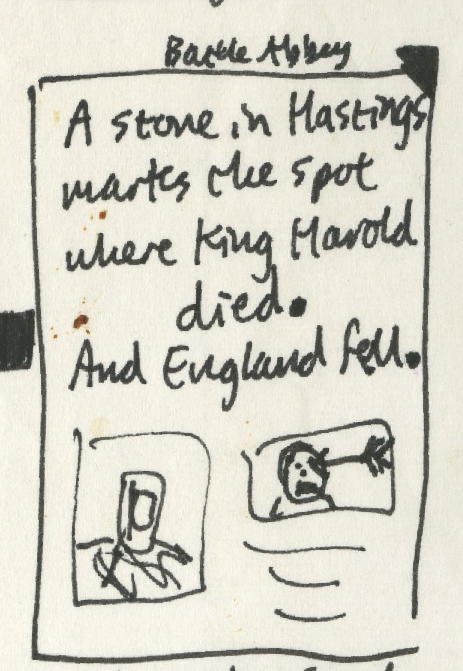 Battle Abbey
A stone in Hastings
marks the spot
where King Harold
died.
And England fell.